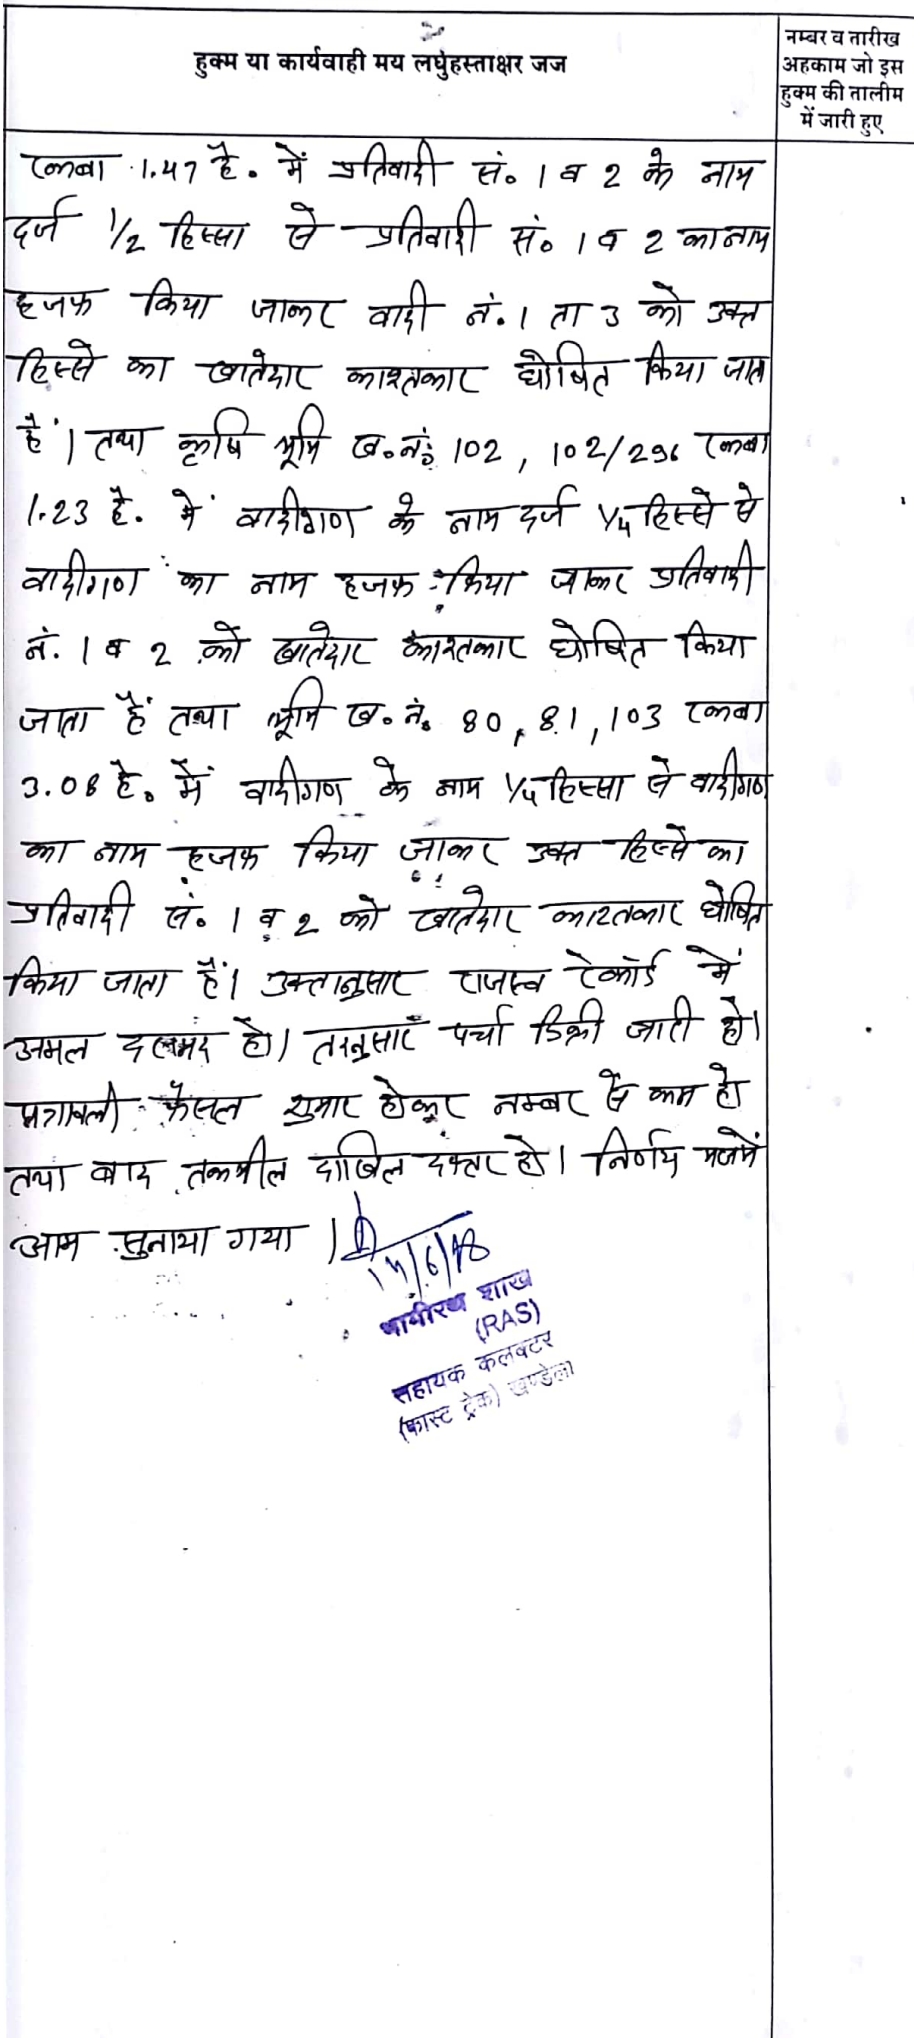 हुक्म या कार्यवाही मय लघुहस्ताक्षर जज
नम्बर व तारीख
अहकाम जो इस
हुक्म की तालीम
में जारी हुए
रकबा 1.47 है. में प्रतिवादी सं. 1 व 2 के नाम
दर्ज 1/2 हिस्सा से प्रतिवादी सं. 1 व 2 का नाम
हजफ किया जाकर वादी नं. 1 ता 3 को उक्त
हिस्से का खातेदार काश्तकार घोषित किया जाता
है। तथा कृषि भूमि ख.नं. 102, 102/296 रकबा
1.23 है. में वादीगण के नाम दर्ज 1/4 हिस्से से
वादीगण का नाम हजफ किया जाकर प्रतिवादी
नं. 1 व 2 को खातेदार काश्तकार घोषित किया
जाता है तथा भूमि ख.नं. 80, 81, 103 रकबा
3.08 है. में वादीगण के नाम 1/4 हिस्सा से वादीगण
का नाम हजफ किया जाकर उक्त हिस्से का
प्रतिवादी सं. 1 व 2 को खातेदार काश्तकार घोषित
किया जाता हैं। उक्तानुसार राजस्व रेकॉर्ड में
अमल दरामद हो। तदनुसार पर्चा डिक्री जारी हो।
पत्रावली फैसल शुमार होकर नम्बर से कम हो
तथा बाद तकमील दाखिल दफ्तर हो। निर्णय मजमें
आम सुनाया गया।
14/6/18
भागीरथ शाख
(RAS)
सहायक कलक्टर
(फास्ट ट्रेक) खण्डेला